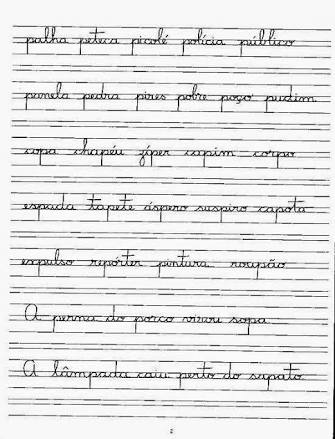 palha peteca picolé polícia público
panela pedra pires pobre poço pudim
copa chapéu zíper capim corpo
espada tapete áspero suspiro capota
expulso repórter pintura roupão
A perna do porco virou sopa.
A lâmpada caiu perto do sapato.
2